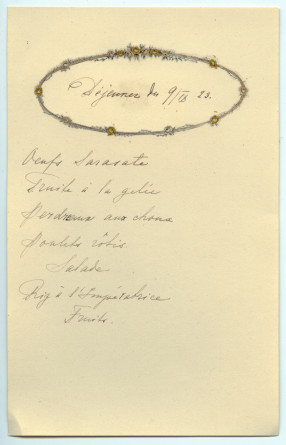 Déjeuner du 9/IX 23.
Oeufs Sarasate
Truite à la gelée
Perdreaux aux choux
Poulets rôtis
Salade
Riz à l'Impératrice
Fruits.